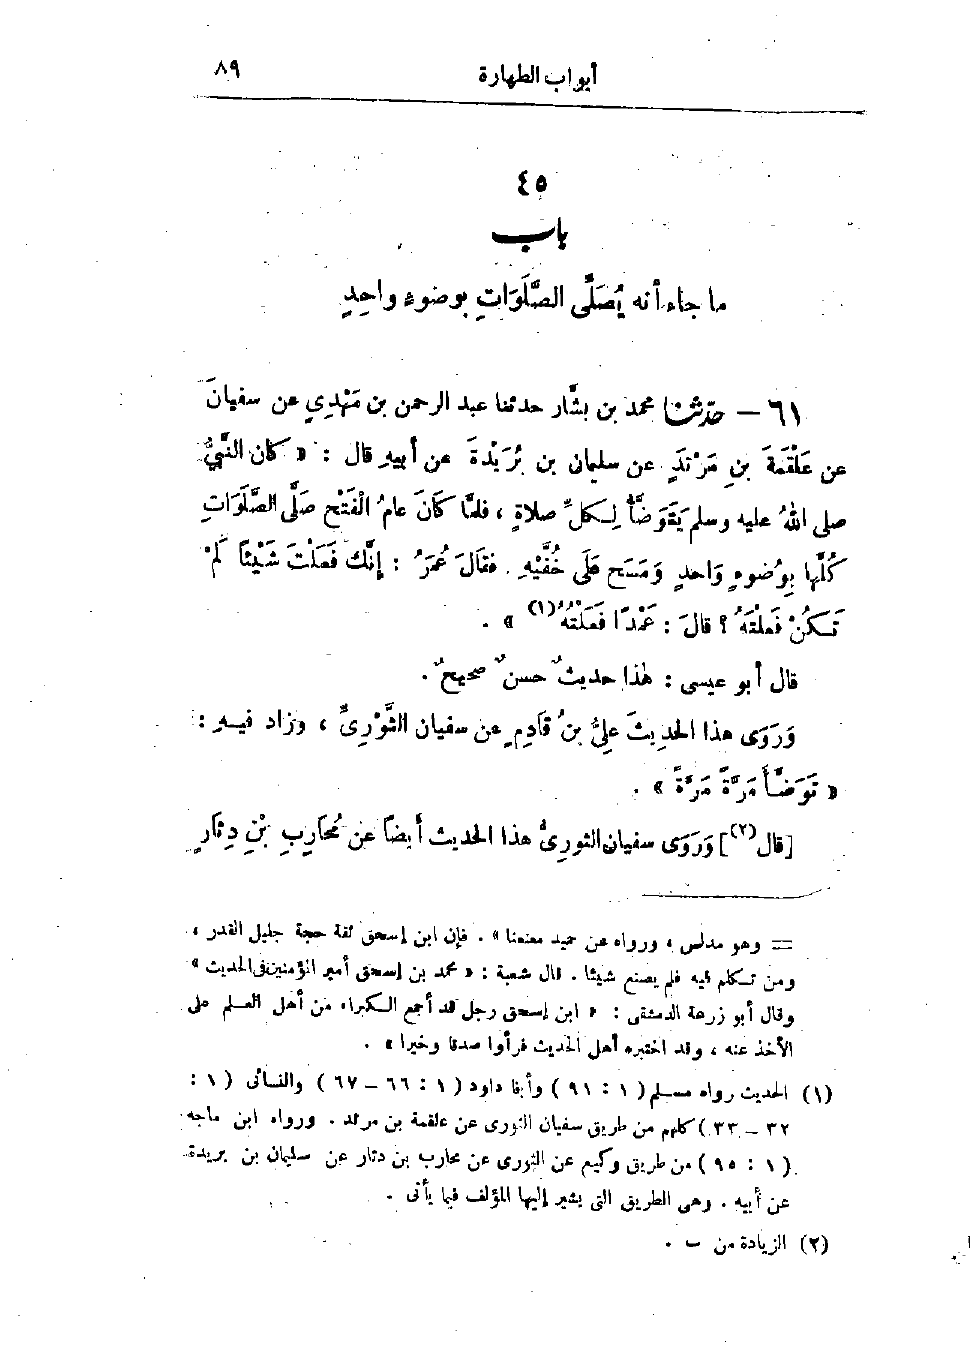 أبواب الطهارة ٨٩
٤٥
باب
ما جاء أنه يُصَلَّى الصَّلَوَاتِ بوضوء واحِدٍ
٦١ – حدّثنا محمد بن بشَّار حدثنا عبد الرحمن بن مَهْدِي عن سفيانَ
عن عَلْقَمَةَ بنِ مَرْثَدٍ عن سليمان بن بُرَيْدَةَ عن أبيهِ قال : « كان النَّبيُّ
صلى اللهُ عليه وسلم يَتَوَضَّأُ لِكلِّ صلاةٍ ، فلمَّا كَانَ عامُ الْفَتْحِ صَلَّى الصَّلَوَاتِ
كُلَّها بِوُضوءٍ وَاحدٍ وَمَسَحَ عَلَى خُفَّيْهِ . فقالَ عُمَرُ : إنَّكَ فَعَلْتَ شَيْئًا لَمْ
تَكُنْ فَعلْتَهُ ؟ قالَ : عَمْدًا فَعَلْتُهُ(١) » .
قال أبو عيسى : هٰذا حديثٌ حسنٌ صحيحٌ .
وَرَوَى هذا الحديثَ عليُّ بنُ قَادِمٍ عن سفيان الثَّوْرِيِّ ، وزاد فيهِ :
« تَوَضَّأَ مَرَّةً مَرَّةً » .
[قال(٢)] وَرَوَى سفيان الثوريُّ هذا الحديث أيضًا عن مُحَارِبِ بْنِ دِثَارٍ
= وهو مدلس ، ورواه عن حميد معنعنا » . فإن ابن إسحق ثقة حجة جليل القدر ،
ومن تكلم فيه فلم يصنع شيئا . قال شعبة : « محمد بن إسحق أمير المؤمنين فى الحديث »
وقال أبو زرعة الدمشقى : « ابن إسحق رجل قد أجمع الكبراء من أهل العلم على
الأخذ عنه ، وقد اختبره أهل الحديث فرأوا صدقا وخيرا » .
(١) الحديث رواه مسلم ( ١ : ٩١ ) وأبو داود ( ١ : ٦٦ – ٦٧ ) والنسائى ( ١ :
٣٢ – ٣٣ ) كلهم من طريق سفيان الثورى عن علقمة بن مرثد . ورواه ابن ماجه
( ١ : ٩٥ ) من طريق وكيع عن الثورى عن محارب بن دثار عن سليمان بن بريدة
عن أبيه . وهى الطريق التى يشير إليها المؤلف فيما يأتى .
(٢) الزيادة من ب .